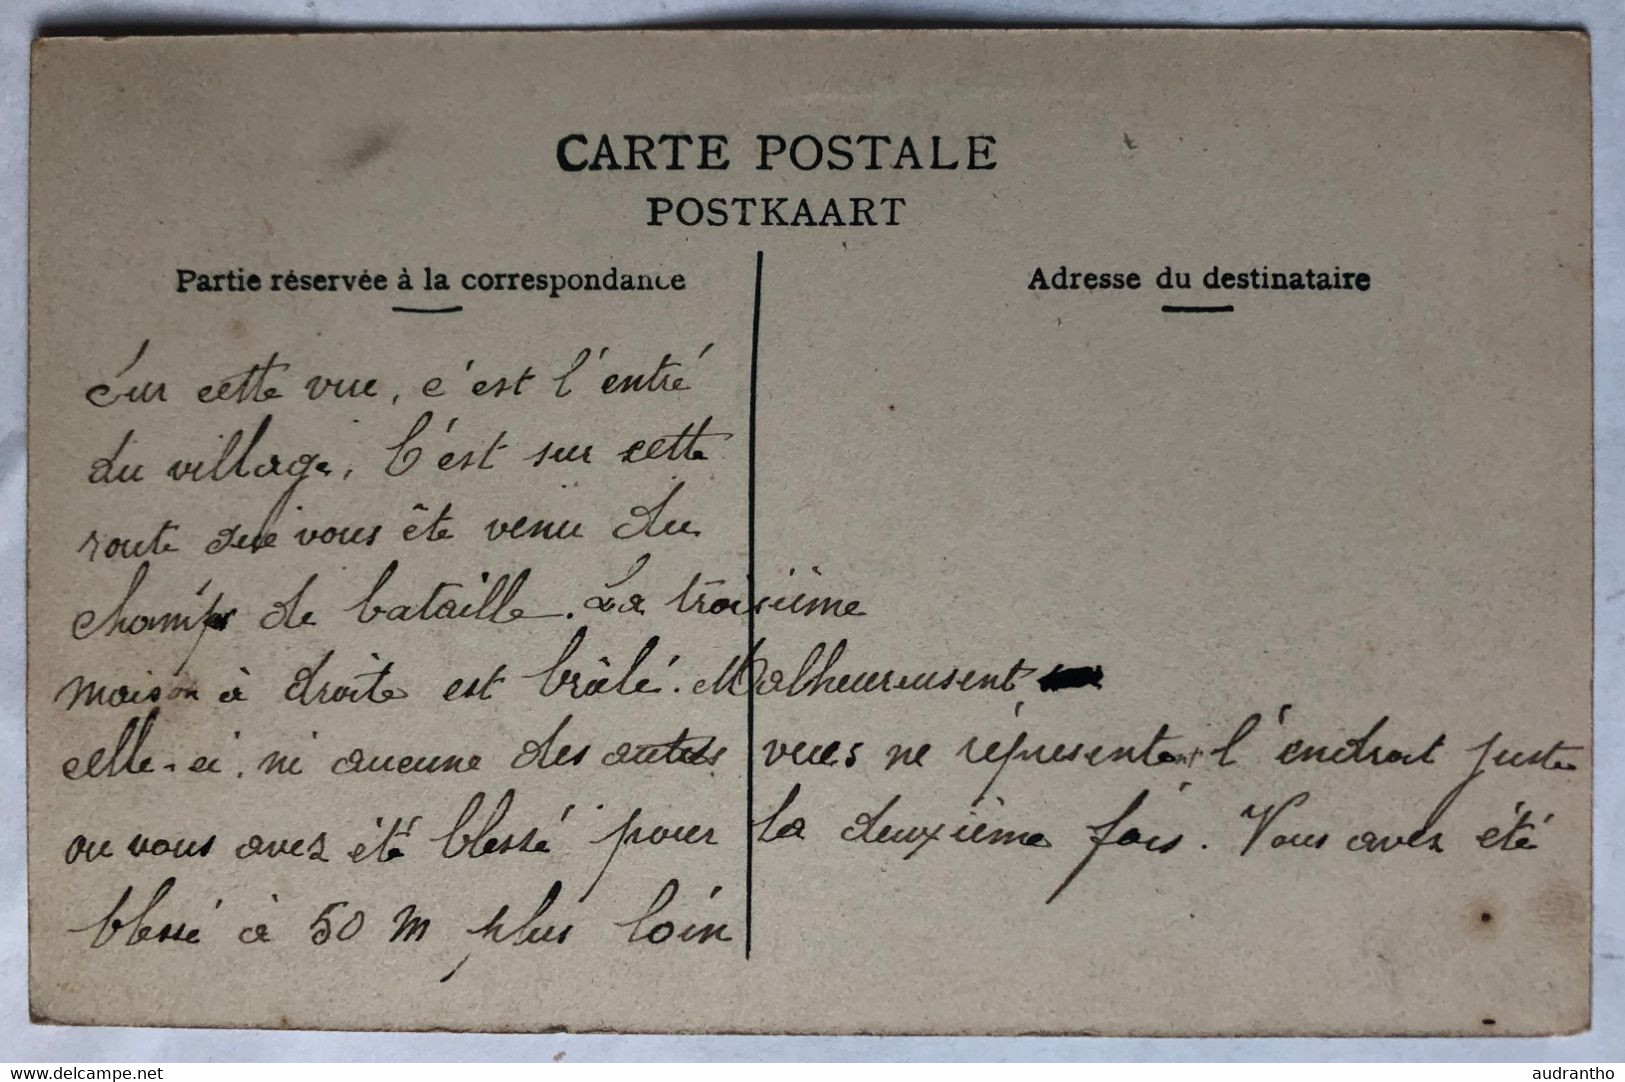 CARTE POSTALE
POSTKAART
Partie réservée à la correspondance
Adresse du destinataire
Sur cette vue, c'est l'entré
du village, C'est sur cette
route que vous ête venu du
champs de bataille. La troisiéme
maison à droite est brûlé. Malheureusent
celle-ci, ni aucune des autres vues ne répresentent l'endroit juste
ou vous avez été blessé pour la deuxième fois. Vous avez été
blessé à 50 m plus loin
www.delcampe.net
audrantho